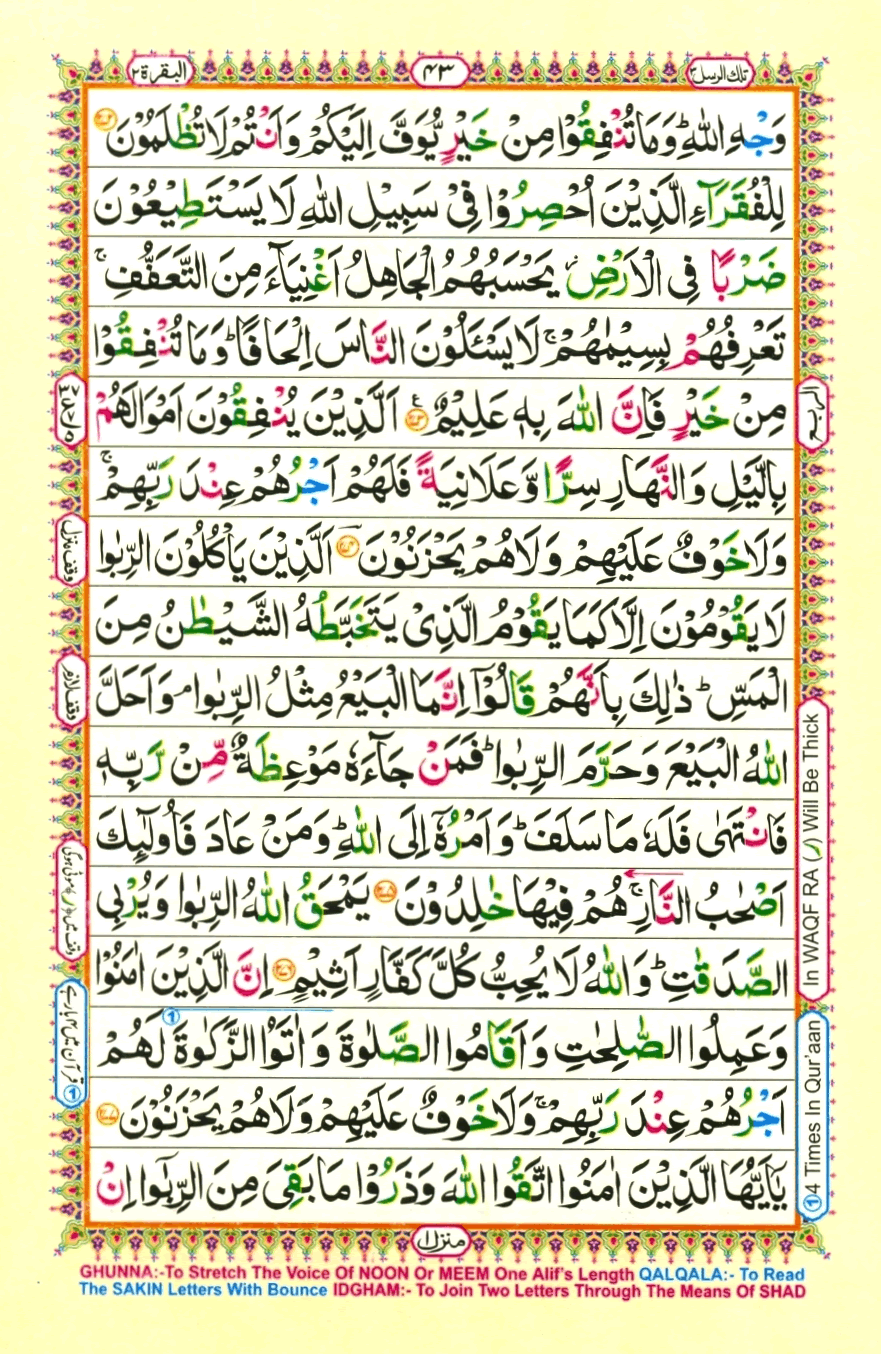 تلك الرسل ۳
۴۳
البقرة ۲
وَجْهِ اللّٰهِ ؕ وَمَا تُنْفِقُوْا مِنْ خَيْرٍ يُّوَفَّ اِلَيْكُمْ وَاَنْتُمْ لَا تُظْلَمُوْنَ ۝۲۷۲
لِلْفُقَرَآءِ الَّذِيْنَ اُحْصِرُوْا فِيْ سَبِيْلِ اللّٰهِ لَا يَسْتَطِيْعُوْنَ
ضَرْبًا فِي الْاَرْضِ ؗ يَحْسَبُهُمُ الْجَاهِلُ اَغْنِيَآءَ مِنَ التَّعَفُّفِ ۚ
تَعْرِفُهُمْ بِسِيْمٰىهُمْ ۚ لَا يَسْـَٔلُوْنَ النَّاسَ اِلْحَافًا ؕ وَمَا تُنْفِقُوْا
مِنْ خَيْرٍ فَاِنَّ اللّٰهَ بِهٖ عَلِيْمٌ ۝۲۷۳ اَلَّذِيْنَ يُنْفِقُوْنَ اَمْوَالَهُمْ
بِالَّيْلِ وَالنَّهَارِ سِرًّا وَّعَلَانِيَةً فَلَهُمْ اَجْرُهُمْ عِنْدَ رَبِّهِمْ ۚ
وَلَا خَوْفٌ عَلَيْهِمْ وَلَا هُمْ يَحْزَنُوْنَ ۝۲۷۴ اَلَّذِيْنَ يَاْكُلُوْنَ الرِّبٰوا
لَا يَقُوْمُوْنَ اِلَّا كَمَا يَقُوْمُ الَّذِيْ يَتَخَبَّطُهُ الشَّيْطٰنُ مِنَ
الْمَسِّ ؕ ذٰلِكَ بِاَنَّهُمْ قَالُوْٓا اِنَّمَا الْبَيْعُ مِثْلُ الرِّبٰوا ۘ وَاَحَلَّ
اللّٰهُ الْبَيْعَ وَحَرَّمَ الرِّبٰوا ؕ فَمَنْ جَآءَهٗ مَوْعِظَةٌ مِّنْ رَّبِّهٖ
فَانْتَهٰى فَلَهٗ مَا سَلَفَ ؕ وَاَمْرُهٗٓ اِلَى اللّٰهِ ؕ وَمَنْ عَادَ فَاُولٰٓئِكَ
اَصْحٰبُ النَّارِ ۚ هُمْ فِيْهَا خٰلِدُوْنَ ۝۲۷۵ يَمْحَقُ اللّٰهُ الرِّبٰوا وَيُرْبِي
الصَّدَقٰتِ ؕ وَاللّٰهُ لَا يُحِبُّ كُلَّ كَفَّارٍ اَثِيْمٍ ۝۲۷۶ اِنَّ الَّذِيْنَ اٰمَنُوْا
وَعَمِلُوا الصّٰلِحٰتِ وَاَقَامُوا الصَّلٰوةَ وَاٰتَوُا الزَّكٰوةَ لَهُمْ
اَجْرُهُمْ عِنْدَ رَبِّهِمْ ۚ وَلَا خَوْفٌ عَلَيْهِمْ وَلَا هُمْ يَحْزَنُوْنَ ۝۲۷۷
يٰٓاَيُّهَا الَّذِيْنَ اٰمَنُوا اتَّقُوا اللّٰهَ وَذَرُوْا مَا بَقِيَ مِنَ الرِّبٰٓوا اِنْ
الربع
In WAQF RA (ر) Will Be Thick
①4 Times In Qur'aan
وقف منزل
وقف لازم
منزل ۱
GHUNNA:-To Stretch The Voice Of NOON Or MEEM One Alif's Length QALQALA:- To Read
The SAKIN Letters With Bounce IDGHAM:- To Join Two Letters Through The Means Of SHAD